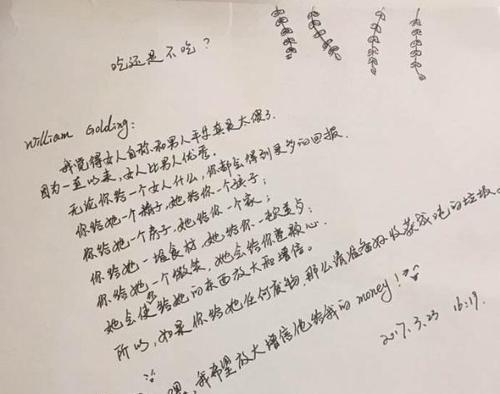 吃还是不吃？
William Golding:
我觉得女人自称和男人平等真是太傻了.
因为一直以来，女人比男人优秀.
无论你给一个女人什么，你都会得到更多的回报.
你给她一个精子，她给你一个孩子；
你给她一个房子，她给你一个家；
你给她一堆食材，她给你一
你给她一个微笑，她会给你整颗心.
她会使给她的东西放大和增倍。
所以，如果你给她任何废物，那么请准备好收获成吨的垃圾。
我希望放大增倍他给我的 money！
2017.3.23 16:19.